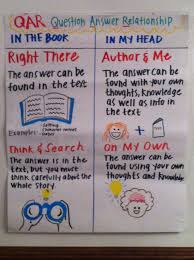 QAR Question Answer Relationship
IN THE BOOK
Right There
The answer can be
found in the text
Example: Setting
Think & Search
The answer is in the
text, but you must
think carefully about the
whole story.
IN MY HEAD
Author & Me
The answer can be
found with your own
thoughts, knowledge
as well as info in
the text
+
On My Own
The answer can be
found using your own
thoughts and knowledge